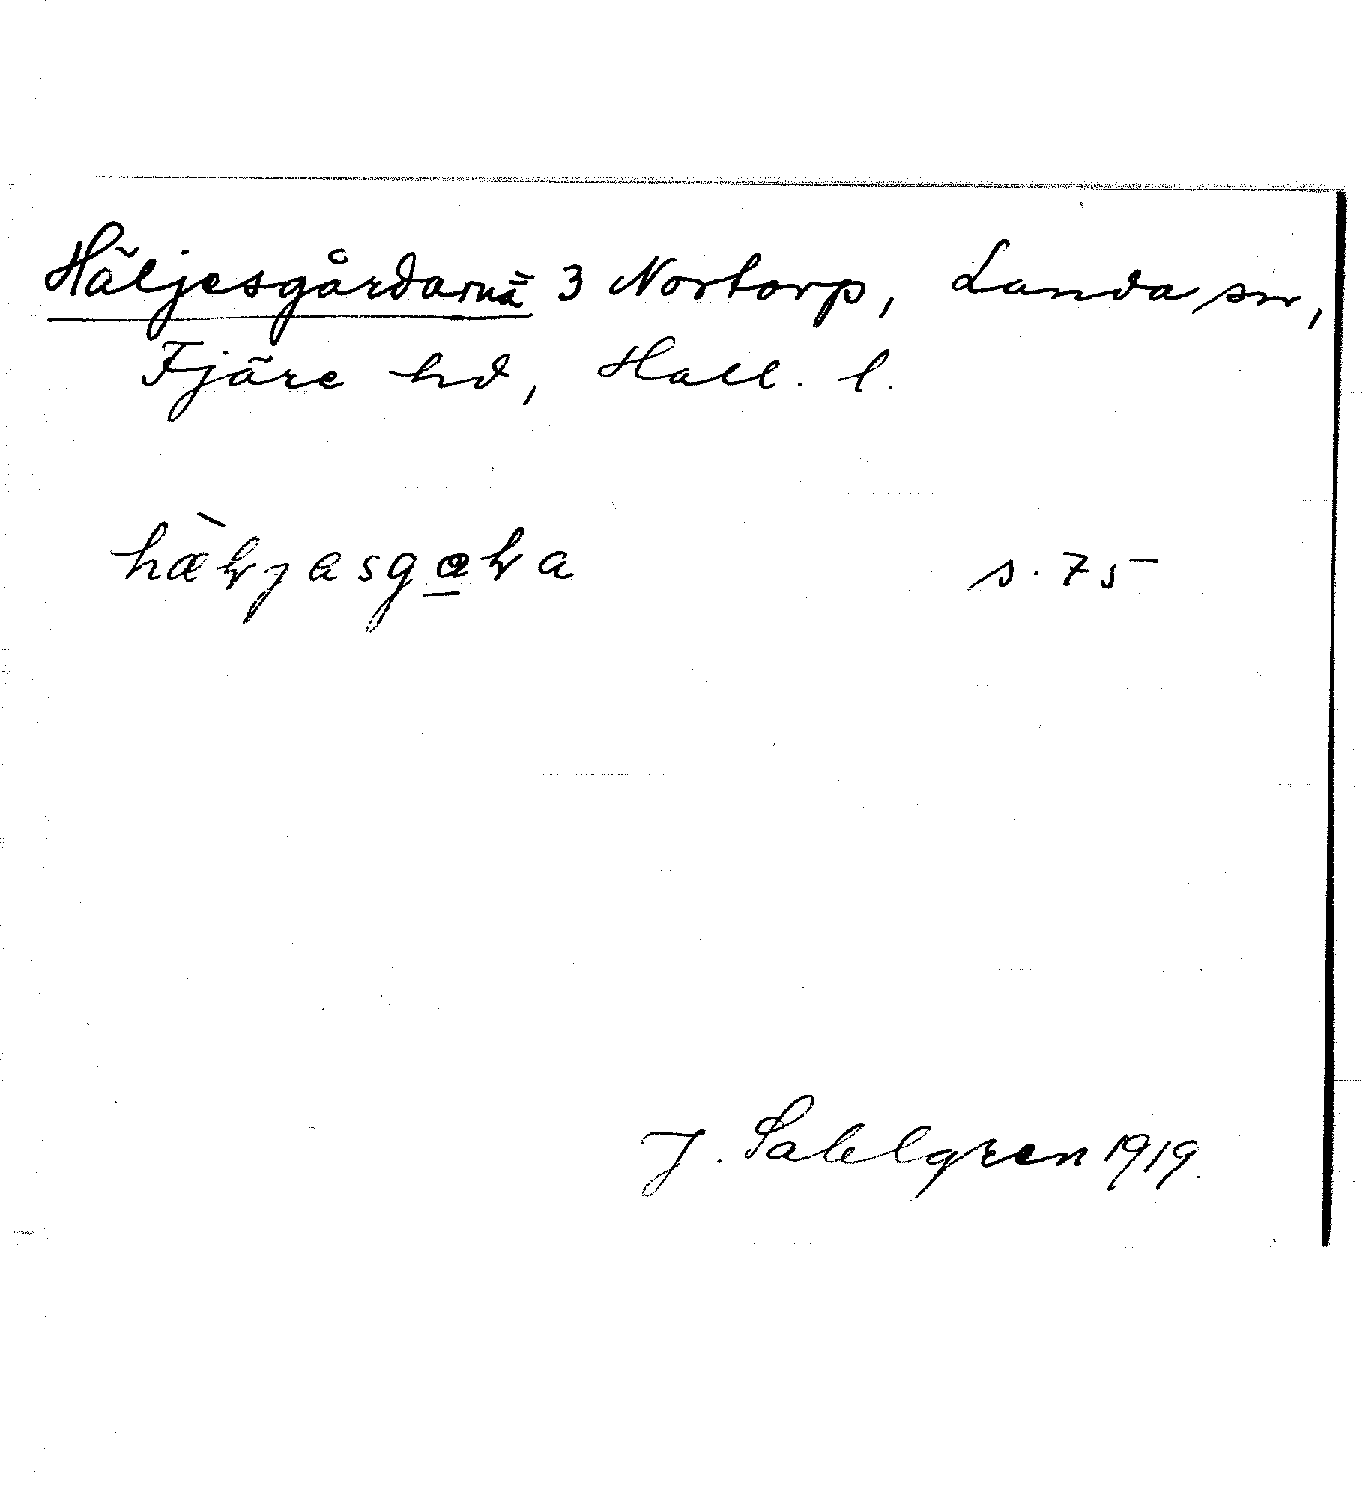 Häljesgårdarnä 3 Nortorp, Landa sn,
Fjäre hd, Hall. l.
hæ̀ƚjasgɷƚa s. 75
J. Sahlgren 1919.